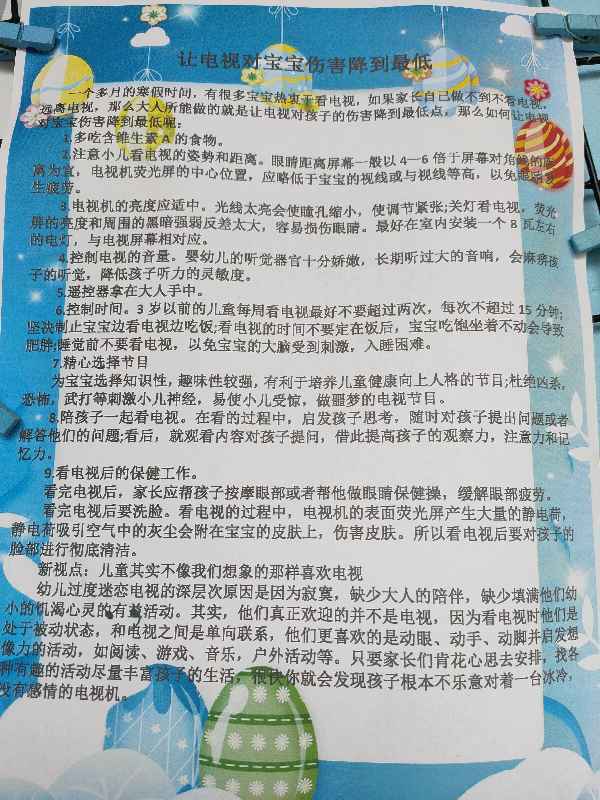 让电视对宝宝伤害降到最低
一个多月的寒假时间，有很多宝宝热衷于看电视，如果家长自己做不到不看电视，
远离电视，那么大人所能做的就是让电视对孩子的伤害降到最低点，那么如何让电视
对宝宝伤害降到最低呢。
1.多吃含维生素A的食物。
2.注意小儿看电视的姿势和距离。眼睛距离屏幕一般以4—6倍于屏幕对角线的距
离为宜，电视机荧光屏的中心位置，应略低于宝宝的视线或与视线等高，以免眼睛
生疲劳。
3.电视机的亮度应适中。光线太亮会使瞳孔缩小，使调节紧张;关灯看电视，荧光
屏的亮度和周围的黑暗强弱反差太大，容易损伤眼睛。最好在室内安装一个8瓦左右
的电灯，与电视屏幕相对应。
4.控制电视的音量。婴幼儿的听觉器官十分娇嫩，长期听过大的音响，会麻痹孩
子的听觉，降低孩子听力的灵敏度。
5.遥控器拿在大人手中。
6.控制时间。3岁以前的儿童每周看电视最好不要超过两次，每次不超过15分钟;
坚决制止宝宝边看电视边吃饭;看电视的时间不要定在饭后，宝宝吃饱坐着不动会导致
肥胖;睡觉前不要看电视，以免宝宝的大脑受到刺激，入睡困难。
7.精心选择节目
为宝宝选择知识性，趣味性较强，有利于培养儿童健康向上人格的节目;杜绝凶杀，
恐怖，武打等刺激小儿神经，易使小儿受惊，做噩梦的电视节目。
8.陪孩子一起看电视。在看的过程中，启发孩子思考，随时对孩子提出问题或者
解答他们的问题;看后，就观看内容对孩子提问，借此提高孩子的观察力，注意力和记
忆力。
9.看电视后的保健工作。
看完电视后，家长应帮孩子按摩眼部或者帮他做眼睛保健操，缓解眼部疲劳。
看完电视后要洗脸。看电视的过程中，电视机的表面荧光屏产生大量的静电荷，
静电荷吸引空气中的灰尘会附在宝宝的皮肤上，伤害皮肤。所以看电视后要对孩子的
脸部进行彻底清洁。
新视点：儿童其实不像我们想象的那样喜欢电视
幼儿过度迷恋电视的深层次原因是因为寂寞，缺少大人的陪伴，缺少填满他们幼
小的饥渴心灵的有益活动。其实，他们真正欢迎的并不是电视，因为看电视时他们是
处于被动状态，和电视之间是单向联系，他们更喜欢的是动眼、动手、动脚并启发想
像力的活动，如阅读、游戏、音乐，户外活动等。只要家长们肯花心思去安排，找各
种有趣的活动尽量丰富孩子的生活，很快你就会发现孩子根本不乐意对着一台冰冷，
没有感情的电视机。